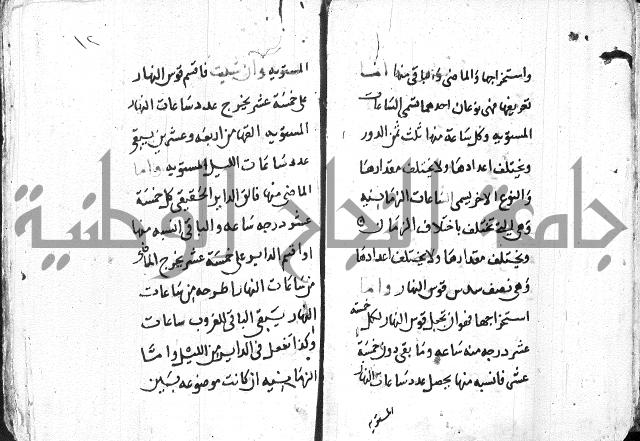 واستخراجها والماضي والباقي منها اما
تعريفها فهي نوعان احدهما تسمى الساعات
المستويه وكل ساعة منها ثلث ثمن الدور
ويختلف اعدادها ولا يختلف مقدارها
والنوع الاخر يسمى الساعات الزمانيه
وهي ايه تختلف باختلاف الزمان
ويختلف مقدارها ولا يختلف اعدادها
وهي نصف سدس قوس النهار واما
استخراجها فهو ان تجعل قوس النهار لكل خمسة
عشر درجه منه ساعه وما بقي دون خمسة
عشر فانسبه منها يحصل عدد ساعات النهار
المستويه
١٢
المستويه وان شيت فاقسم قوس النهار
على خمسة عشر يخرج عدد ساعات النهار
المستويه القها من اربعه وعشرين يبقى
عدد ساعات الليل المستويه واما
الماضي منها فالق الداير الحقيقي كل خمسة
عشر درجه ساعه والباقي انسبه منها
او اقسم الداير على خمسة عشر يخرج الماضي
من ساعات النهار اطرحه من ساعات
النهار يبقى الباقي للغروب ساعات
وكذا تفعل في الداير من الليل واما
الزمانيه ان كانت موضوعه بين
جامعة النجاح الوطنية